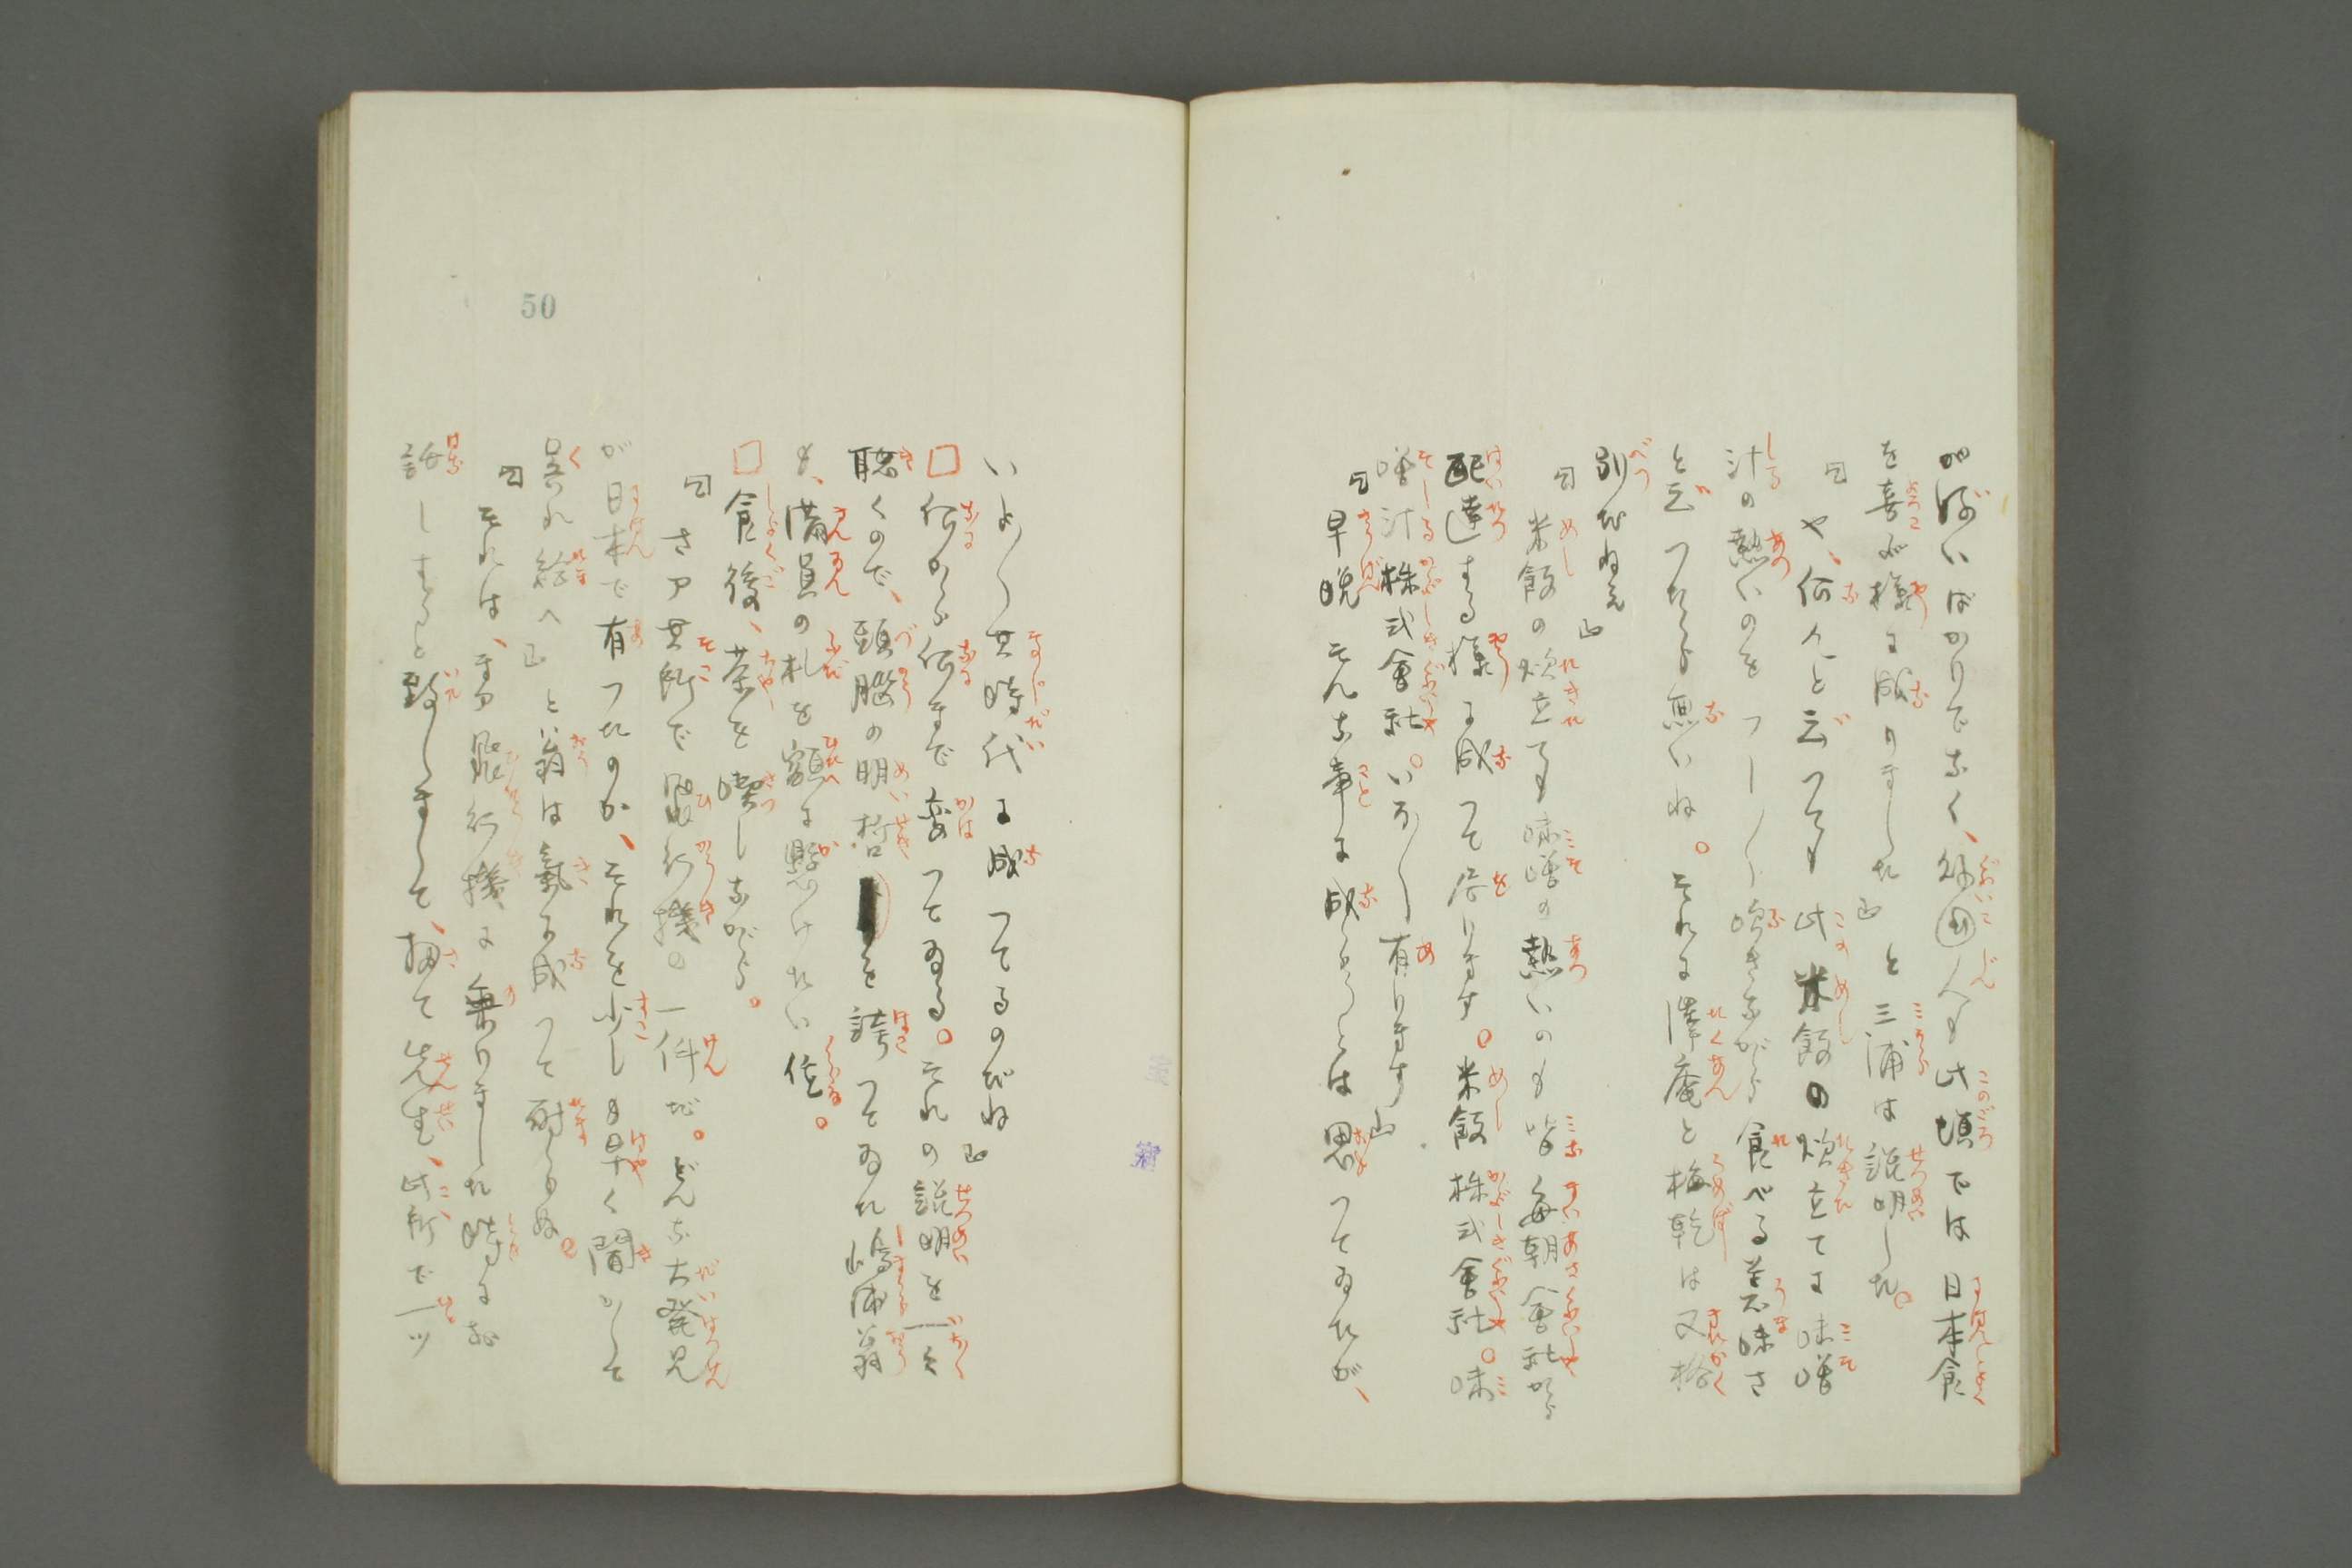 ばかりでなく、外国人も此頃では日本食
を喜ぶ様に成りました」と三浦は説明した。
「や、何んと云つても此米飯の炊立てに味噌
汁の熱いのをフー〳〵吹きながら食べる美味さ
と云つたら無いね。それに澤庵と梅干は又格
別だねえ」
「米飯の炊立ても味噌の熱いのも皆毎朝会社から
配達する様に成つて居ります。米飯株式会社。味
噌汁株式会社。いろ〳〵有ります」
「早晩そんな事に成らうとは思つてゐたが、
いよ〳〵其時代に成つてるのだね」
□何から何まで変つてゐる。それの説明を一々
聴くので、頭脳の明晳を誇つてゐた嶋浦翁
も、満員の札を額に懸けたい位。
□食後、茶を喫しながら。
「さア其所で飛行機の一件だ。どんな大発見
が日本で有つたのか、それを少しも早く聞かして
呉れ給へ」と翁は気に成つて耐らぬ。
「それは、まア飛行機に乗りました時にお
話しすると致しまして、扨て先生、此所で一ツ
50